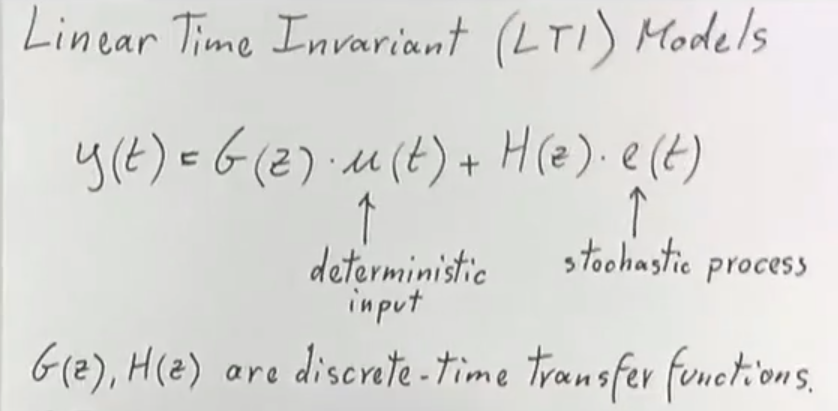 Linear Time Invariant (LTI) Models
y(t) = G(z) · u(t) + H(z) · e(t)
↑ ↑
deterministic input
stochastic process
G(z), H(z) are discrete-time transfer functions.